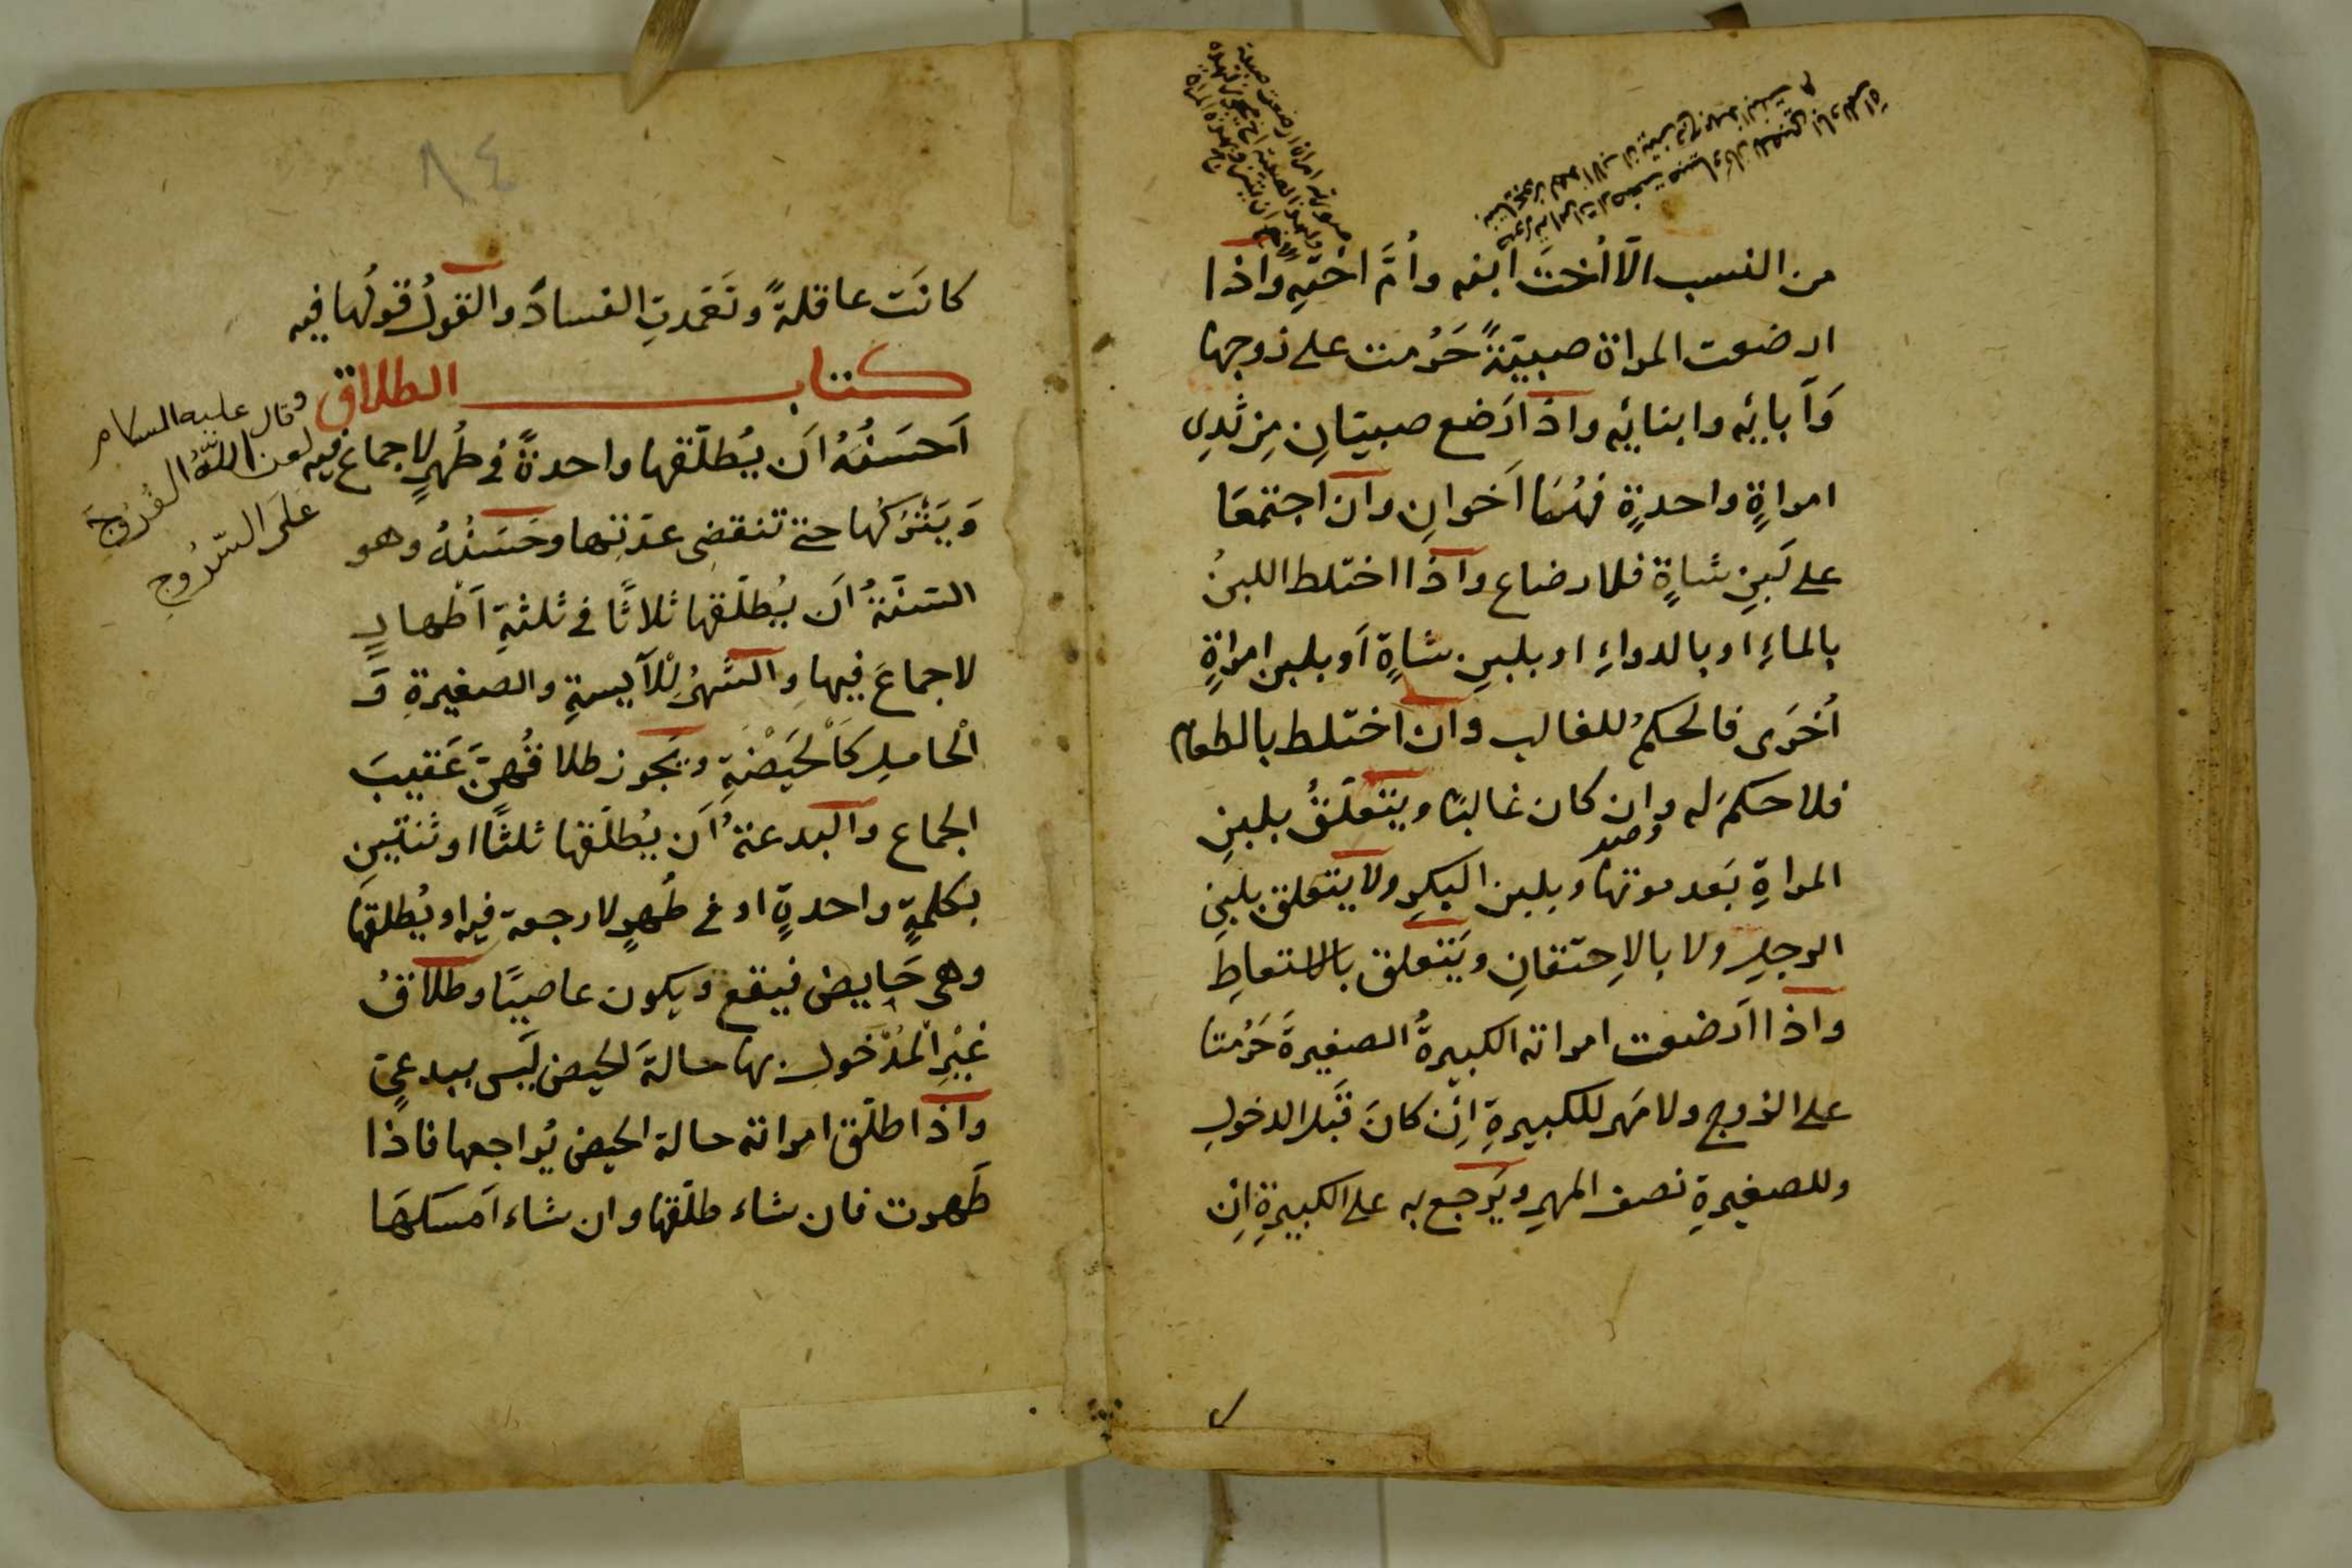 من النسب الّا أُختَ ابنه وأُمَّ اختِهِ واذا
ارضعت المراة صبيّةً حَرُمت على زوجها
وَآبائِه وابنائِه واذا ارَضع صبيّانِ مِن ثدِى
امراةٍ واحدةٍ فهُمَا اَخوانِ وان اجتمعَا
على لَبنِ شاةٍ فلا رضاع واذا اختلط اللبنُ
بالماءِ او بالدواءِ او بلبنِ شاةٍ اَو بلبن امراةٍ
اُخرَى فالحكمُ للغالب وان اختلط بالطعام
فلا حكمَ له وان كان غالبًا ويتعلّقُ بلبنِ
المراةِ بَعد موتها وبلبن البكرِ ولا يتعلق بلبنِ
الرجلِ ولا بالاِحتقانِ ويَتعلق بالاستعاطِ
واذا اَرضعت امراته الكبيرةُ الصغيرةَ حَرُمتا
على الزوج ولا مَهر للكبيرةِ اِن كانَ قَبَل الدخولِ
وللصغيرةِ نصف المهرِ ويَرجع به على الكبيرةِ اِن
٨٤
كانَت عاقلةً وتَعَمدتِ الفسادَ والقولُ قولُها فيه
كتاب الطلاق
اَحسَنُهُ اَن يُطلّقها واحدةً فى طُهرٍ لا جماع فيه
وَيَتْرُكُها حتى تنقضى عدّتها وحَسَنُهُ وهو
السنّةُ اَن يُطلّقها ثلاثًا فى ثلثةِ اَطْهارٍ
لا جماعَ فيها والشهرُ لِلْآيسةِ والصغيرةِ وَ
الْحاملِ كاَلْحَيْضَةِ ويَجوز طلاقُهنَّ عَقيبَ
الجماع والبدعةُ اَن يُطلّقها ثلثًا او ثنتينِ
بكلمةٍ واحدةٍ او فى طُهرٍ لا رجعة فيه او يُطلقها
وهى حَايض فيقع ويكون عاصيًا وطلاقُ
غَيْرِ الْمُدّخولِ بها حالةَ الحيض لَيَس ببدعىٍ
واذا طلّق امراته حالة الحيض يُراجعها فاذا
طَهرت فان شاء طلّقها وان شاء اَمسَكهَا
وقال عليه السلام
لعن اللّهُ الفُرُوجَ
عَلَى السّرُوجِ